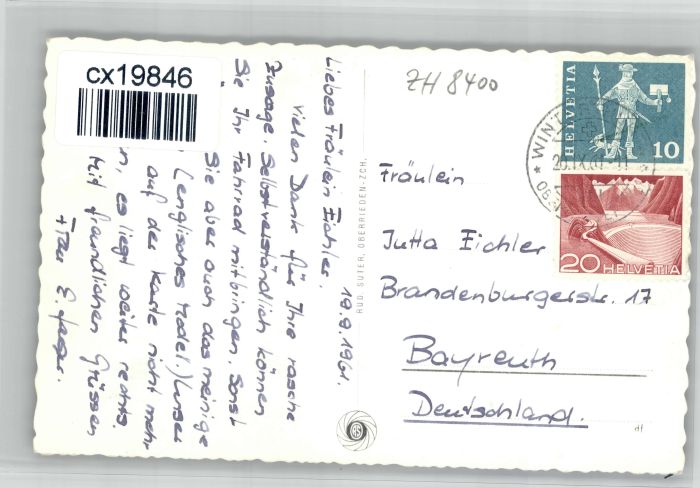 cx19846
ZH 8400
HELVETIA
10
WINT
20 HELVETIA
Liebes Fräulein Eichler.
19.9.1961.
Vielen Dank für Ihre rasche
Zusage. Selbstverständlich können
Sie Ihr Fahrrad mitbringen. Sonst
Sie aber auch das meinige
(englisches Modell.) Unser
auf der Karte nicht mehr
n, es liegt weiter rechts.
Mit freundlichen Grüssen
Frau E.
RUD. SUTER, OBERRIEDEN-ZCH.
Fräulein
Jutta Eichler
Brandenburgerstr. 17
Bayreuth
Deutschland.